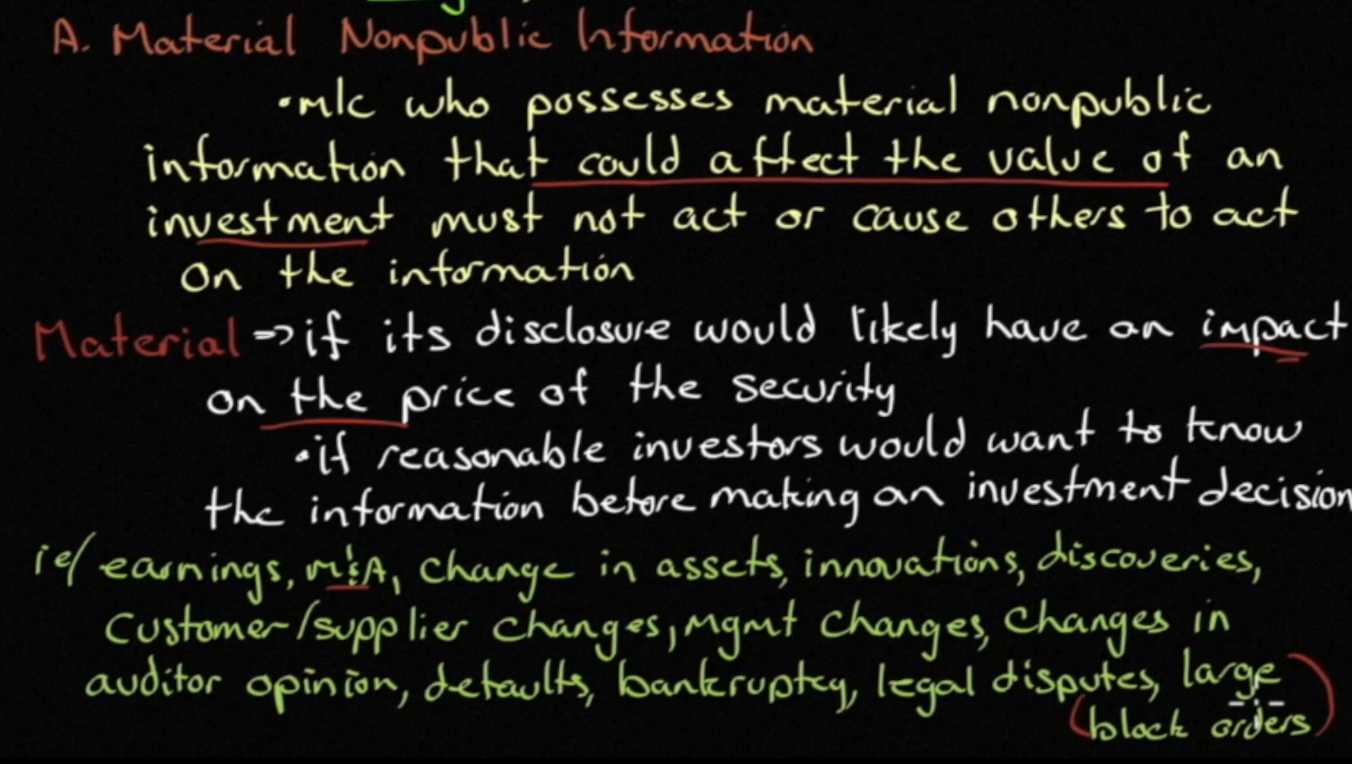 A. Material Nonpublic Information
•m/c who possesses material nonpublic
information that could affect the value of an
investment must not act or cause others to act
on the information
Material => if its disclosure would likely have an impact
on the price of the security
•if reasonable investors would want to know
the information before making an investment decision
ie/ earnings, M&A, change in assets, innovations, discoveries,
Customer/supplier changes, Mgmt changes, changes in
auditor opinion, defaults, bankruptcy, legal disputes, large
block orders